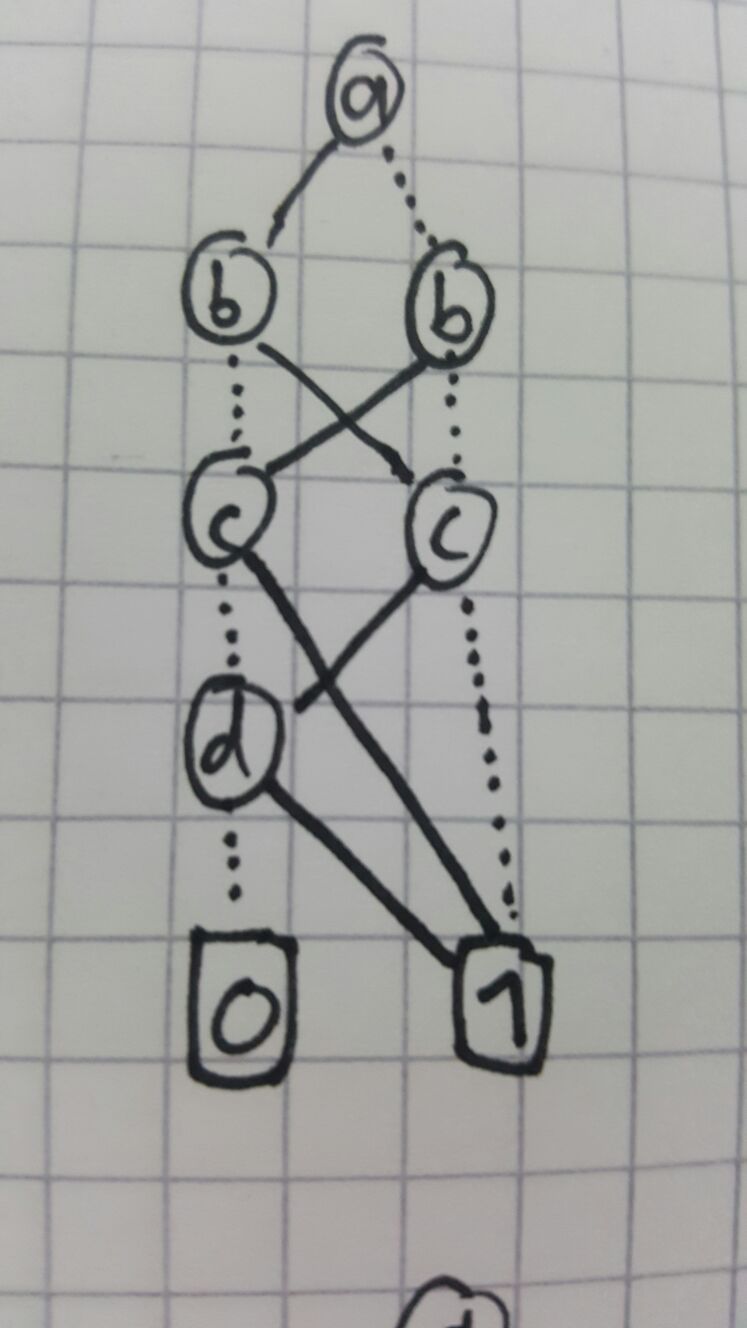 a
b b
c c
d
0 1